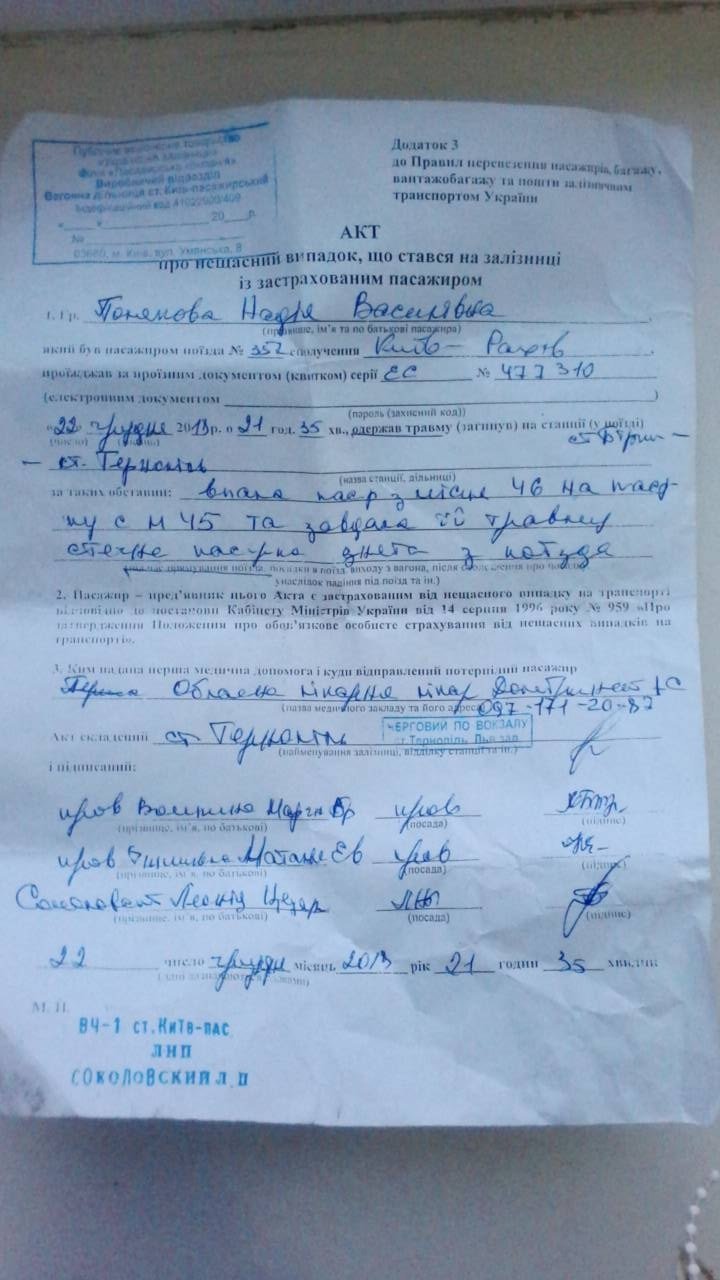 Публічне акціонерне товариство
«Українська залізниця»
Філія «Пасажирська компанія»
Виробничий підрозділ
Вагонна дільниця ст. Київ-пасажирський
Ідентифікаційний код 41022900/409
« » 20 р.
№
03680, м. Київ, вул. Уманська, 8
Додаток 3
до Правил перевезення пасажирів, багажу,
вантажобагажу та пошти залізничним
транспортом України
АКТ
про нещасний випадок, що стався на залізниці
із застрахованим пасажиром
1. Гр. Надія Василівна
(прізвище, ім’я та по батькові пасажира)
який був пасажиром поїзда № 357 сполучення Київ – Рахів
проїжджав за проїзним документом (квитком) серії ЕС № 477310
(електронним документом )
(пароль (захисний код))
«22» грудня 2019р. о 21 год. 35 хв., одержав травму (загинув) на станції (у поїзді)
– ст. Тернопіль
(назва станції, дільниці)
за таких обставин: впала паср з місця 46 на
м 45 та завдала її травму
знята з поїзда
унаслідок падіння під поїзд та ін.)
2. Пасажир – пред’явник цього Акта є застрахованим від нещасного випадку на транспорті
відповідно до постанови Кабінету Міністрів України від 14 серпня 1996 року № 959 «Про
затвердження Положення про обов’язкове особисте страхування від нещасних випадків на
транспорті».
3. Ким надана перша медична допомога і куди відправлений потерпілий пасажир
Перша Обласна лікарня лікар
(назва медичного закладу та його адреса) 097-171-20-87
Акт складений ст Тернопіль
ЧЕРГОВИЙ ПО ВОКЗАЛУ
ст. Тернопіль Льв.зал.
(найменування залізниці, відділку станції та ін.)
і підписаний:
пров пров
(прізвище, ім’я, по батькові) (посада) (підпис)
пров пров
(прізвище, ім’я, по батькові) (посада) (підпис)
Леонід ЛНП
(прізвище, ім’я, по батькові) (посада) (підпис)
22 число грудня місяць 2019 рік 21 години 35 хвилин
М. П.
ВЧ-1 ст.Київ-пас
ЛНП
СОКОЛОВСКИЙ Л П